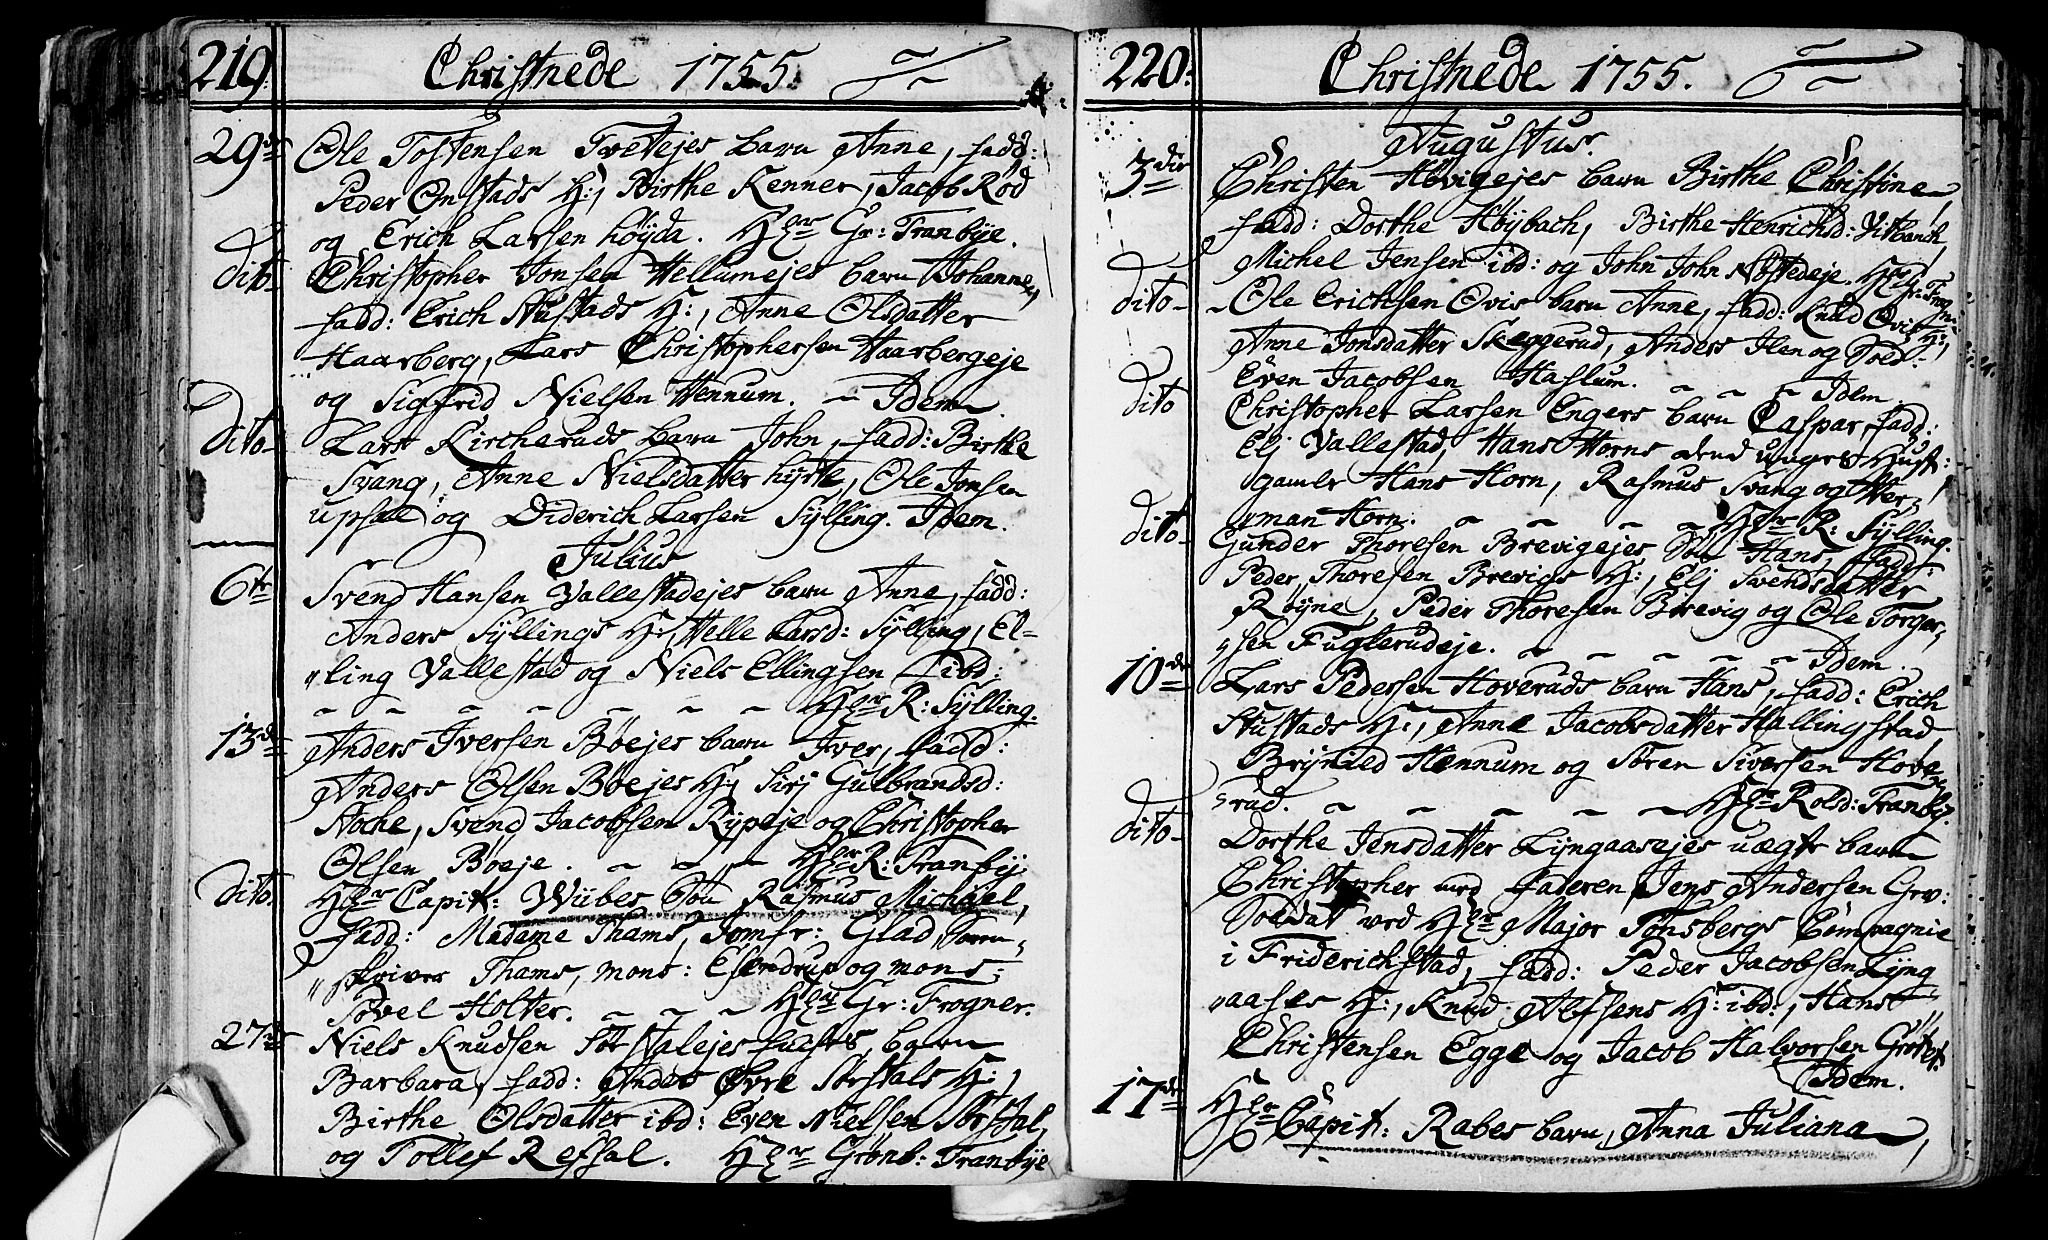 219. Christnede 1755.
29de Ole Tostensen Tvetejes barn Anne, fadd:
Peder Onstads H:, Birthe Kenner, Jacob Rød
og Erich Larsen høyda. Hr Gr: Tranbye.
dito Christopher Jonsen Hellumejes barn Johannes,
fadd: Erich Nustads H:, Anne Olsdatter
Haarberg, Lars Christophersen Haarbergeje
og Sigfrid Nielsen Hennum. Idem.
dito Lars Kircheruds barn John, fadd: Birthe
Svang, Anne Nielsdatter hyrte, Ole Jonsen
upsal og Diderich Larsen Sylling. Idem.
Julius
6te Svend Hansen Vallestadejes barn Anne, fadd:
Anders Syllings H:, Helle Larsd: Sylling, El-
"ling Vallestad og Niels Ellingsen ibd:
Hr R: Sylling.
13de Anders Iversen Bøejes barn Iver, fadd:
Anders Olsen Bøejes H:, Sirj Gulbrandsd:
Noche, Svend Jacobsen Rypeje og Christopher
Olsen Bøeje. Hr R: Tranby.
dito. Hr Capit: Wübes Søn Rasmus Michael,
fadd: Madame Thams, Jomfr: Glad, Soren-
"skriver Thams, mons: Esendrup og mons:
Povel Holter. Hr Gr: Frogner.
27de Niels Knudsen Sørstalejes barn
Barbara, fadd: Andes Øvre Sørstals H:,
Birthe Olsdatter ibd: Even Nielsen Sørstal,
og Tollef Refsal. Hr Grønb: Tranbye
220. Christnede 1755.
Augustus.
3die Christen Høvigejes barn Birthe Christine,
fadd: Dorthe Høybach, Birthe Henrichsd: Vitbanch,
Michel Jensen ibd: og John John Nøstedeje. Hr Gr: Frogn:
dito Ole Erichsen Ovis barn Anne, fadd: Knud Ovis H:,
Anne Jonsdatter Skeggerud, Anders Ilen og Sold:
Even Jacobsen Haslum. Idem.
dito Christopher Larsen Engers barn Caspar, fadd:
Elj Vallestad, Hans Horns dend unges Hust:
gamle Hans Horn, Rasmus Svang og Her,
"man Horn. Hr R: Sylling.
dito Gunder Thoresen Brevigejes Søn Hans, fadd:
Peder Thoresen Brevigs H:, Elj Svendsdatter
Røyne, Peder Thoresen Brevig og Ole Torger,
"sen Fuglerudeje. Idem.
10de Lars Pedersen Hoveruds barn Hans, fadd: Erich
Stustads H:, Anne Jacobsdatter Hallingstad,
Brynild Hennum og Søren Siversen Hove-
"rud. Hr Rolsd: Tranby.
dito Dorthe Jensdatter Lyngaasejes uægte barn
Christopher med faderen Jens Andersen Gev:
Soldat ved Hr Major Tønsbergs Compagnie
i Friderichstad, fadd: Peder Jacobsen Lyng
"aases H:, Knud Alfsens H: ibd:, Hans
Christensen Egge og Jacob Halvorsen
Idem.
17de Hr Capit: Rabes barn, Anna Juliana,